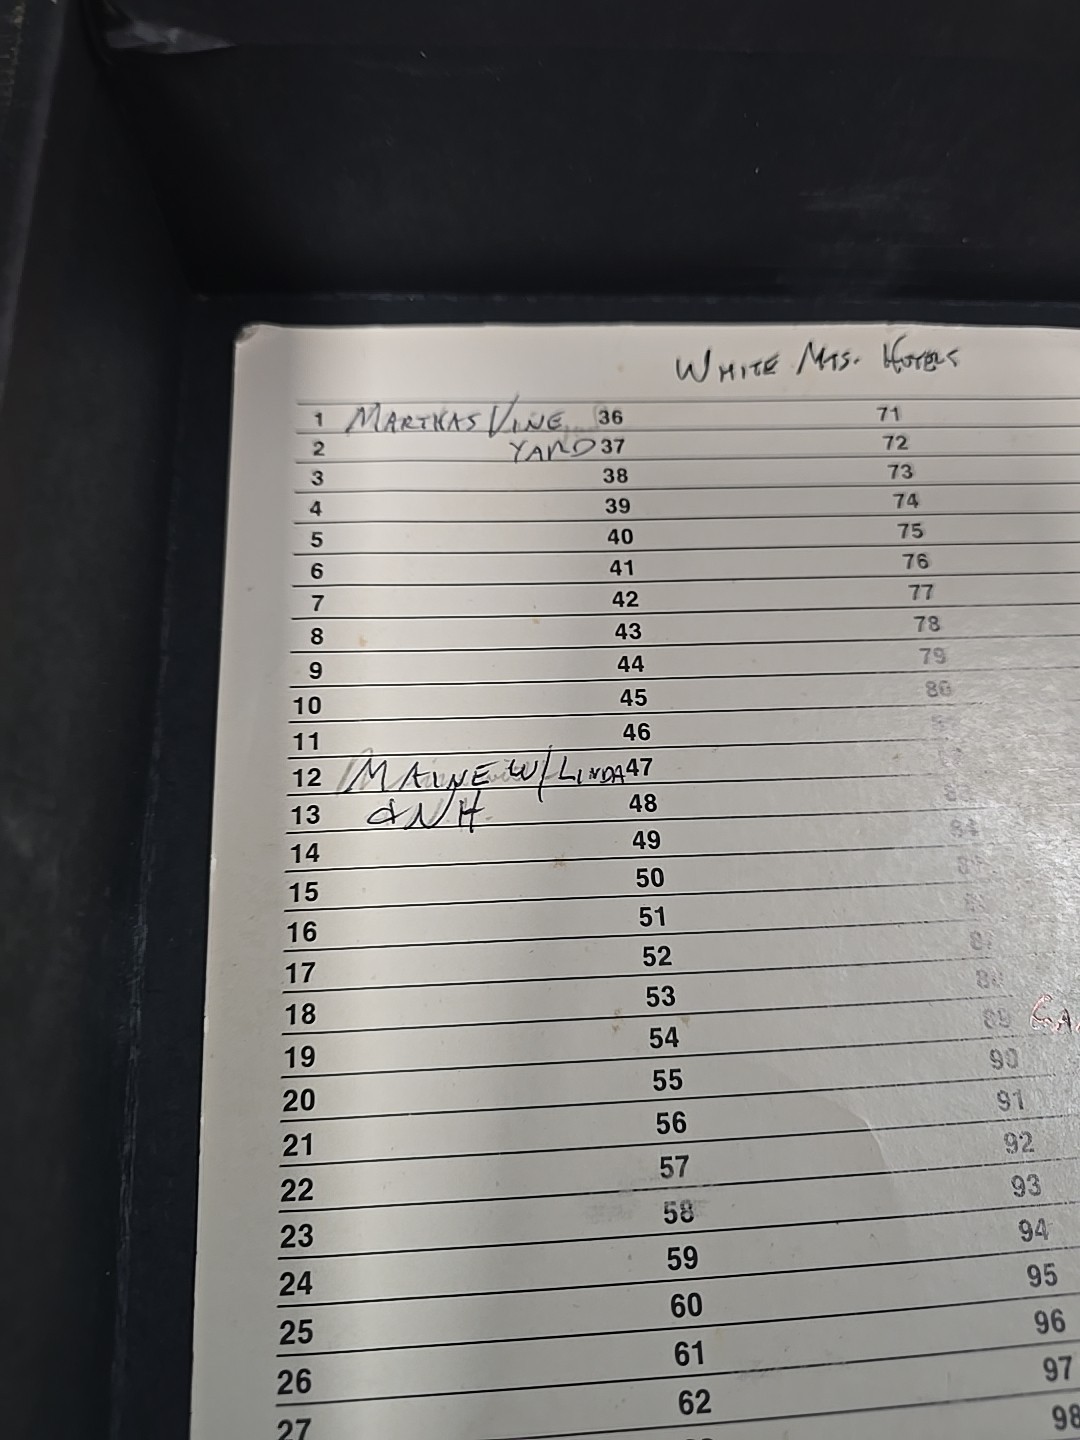 WHITE MTS. HOTELS
1 MARTHAS VINE 36 71
2 YARD 37 72
3 38 73
4 39 74
5 40 75
6 41 76
7 42 77
8 43 78
9 44 79
10 45 80
11 46
12 MAINE W/ LINDA 47
13 & N/H 48 83
14 49 84
15 50
16 51
17 52
18 53
19 54 89
20 55 90
21 56 91
22 57 92
23 58 93
24 59 94
25 60 95
26 61 96
27 62 97
98